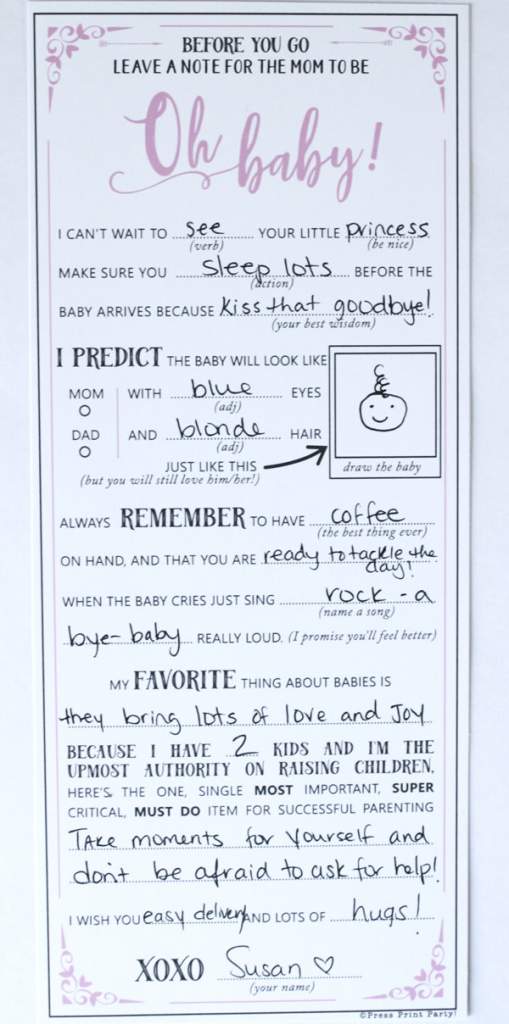 BEFORE YOU GO
LEAVE A NOTE FOR THE MOM TO BE
Oh baby!
I CAN'T WAIT TO see YOUR LITTLE princess
(verb) (be nice)
MAKE SURE YOU sleep lots BEFORE THE
(action)
BABY ARRIVES BECAUSE kiss that goodbye!
(your best wisdom)
I PREDICT THE BABY WILL LOOK LIKE
MOM WITH blue EYES
(adj)
DAD AND blonde HAIR
(adj)
JUST LIKE THIS
(but you will still love him/her!)
draw the baby
ALWAYS REMEMBER TO HAVE coffee
(the best thing ever)
ON HAND, AND THAT YOU ARE ready to tackle the
day!
WHEN THE BABY CRIES JUST SING rock-a
(name a song)
bye-baby REALLY LOUD. (I promise you'll feel better)
MY FAVORITE THING ABOUT BABIES IS
they bring lots of love and Joy
BECAUSE I HAVE 2 KIDS AND I'M THE
UPMOST AUTHORITY ON RAISING CHILDREN,
HERE'S THE ONE, SINGLE MOST IMPORTANT, SUPER
CRITICAL, MUST DO ITEM FOR SUCCESSFUL PARENTING
Take moments for yourself and
don't be afraid to ask for help!
I WISH YOU easy delivery AND LOTS OF hugs!
XOXO Susan ♡
(your name)
©Press Print Party!